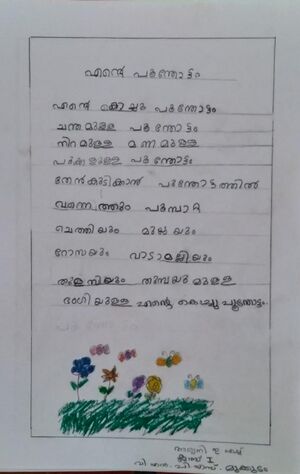 എന്റെ പൂന്തോട്ടം
എന്റെ കൊച്ചു പൂന്തോട്ടം
ചന്തമുള്ള പൂന്തോട്ടം
നിറമുള്ള മണമുള്ള
പൂന്തോട്ടം
തേൻകുടിക്കാൻ പൂന്തോട്ടത്തിൽ
വന്നെത്തും പൂമ്പാറ്റ
ചെത്തിയും മുല്ലയും
റോസയും വാടാമല്ലിയും
തുളസിയും തുമ്പയുമുള്ള
ഭംഗിയുള്ള എന്റെ കൊച്ചു പൂന്തോട്ടം.
പൂന്തോട്ടം
ക്ലാസ്സ് I